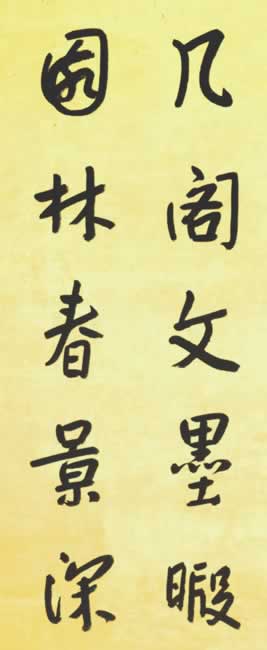 几阁文墨暇
園林春景深